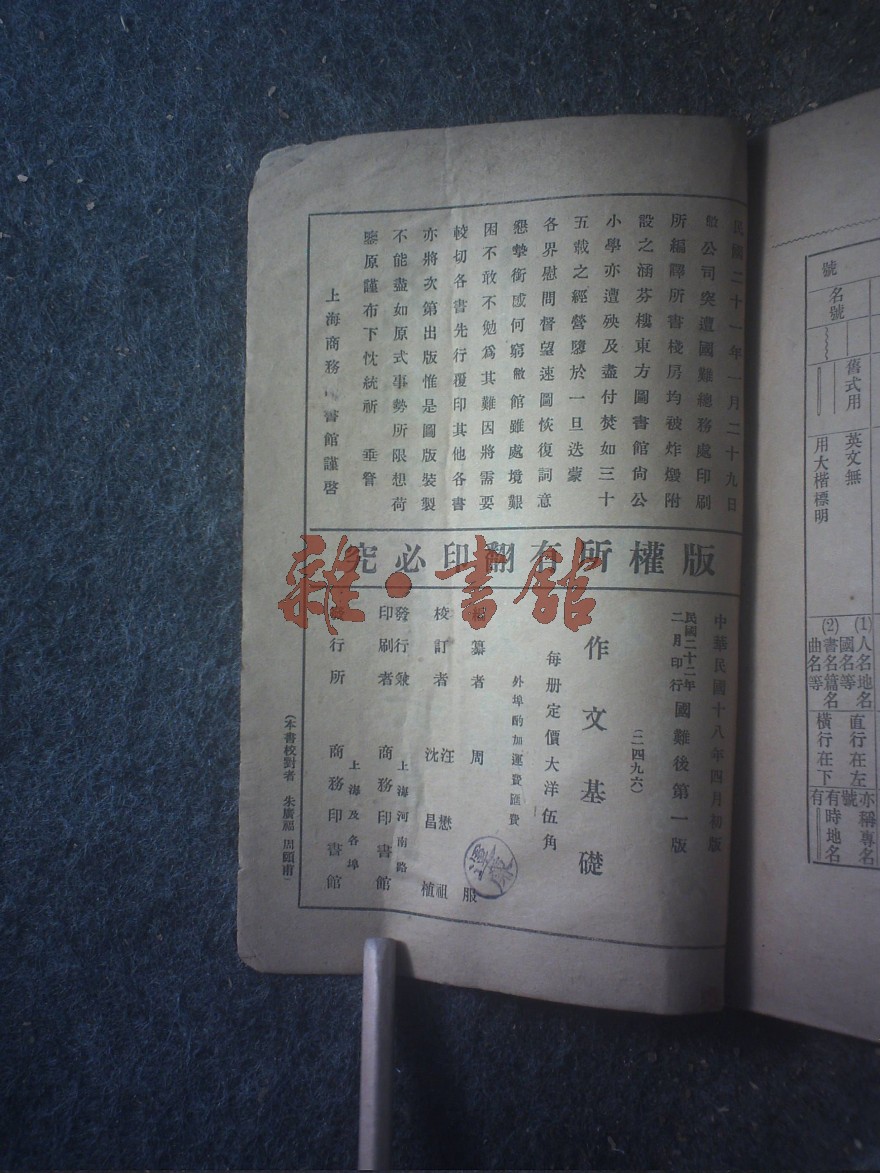 民國二十一年一月二十九日
敝公司突遭國難總務處印刷
所編譯所書棧房均被炸燬附
設之涵芬樓東方圖書館尙公
小學亦遭殃及盡付焚如三十
五載之經營隳於一旦迭蒙
各界慰問督望速圖恢復詞意
懇摯銜感何窮敝館雖處境艱
困不敢不勉爲其難因將需要
較切各書先行覆印其他各書
亦將次第出版惟是圖版裝製
不能盡如原式事勢所限想荷
鑒原謹布下忱統祈 垂詧
上海商務 書館謹啓
版權所有翻印必究
中華民國十八年四月初版
民國二十二年二月印行 國難後第一版
(二四九六)
作文基礎
每册定價大洋伍角
外埠酌加運費匯費
纂者 周服
校訂者 汪懋祖 沈昌植
發行兼印刷者 上海河南路 商務印書館
行所 上海及各埠 商務印書館
(本書校對者 朱廣福 周頤甫)
雜·書館
號
名號
舊式用
英文無
用大楷標明
(1)人名地名國名等
(2)書名篇名曲名等
直行在左
橫行在下
亦稱專名號
有時地名有